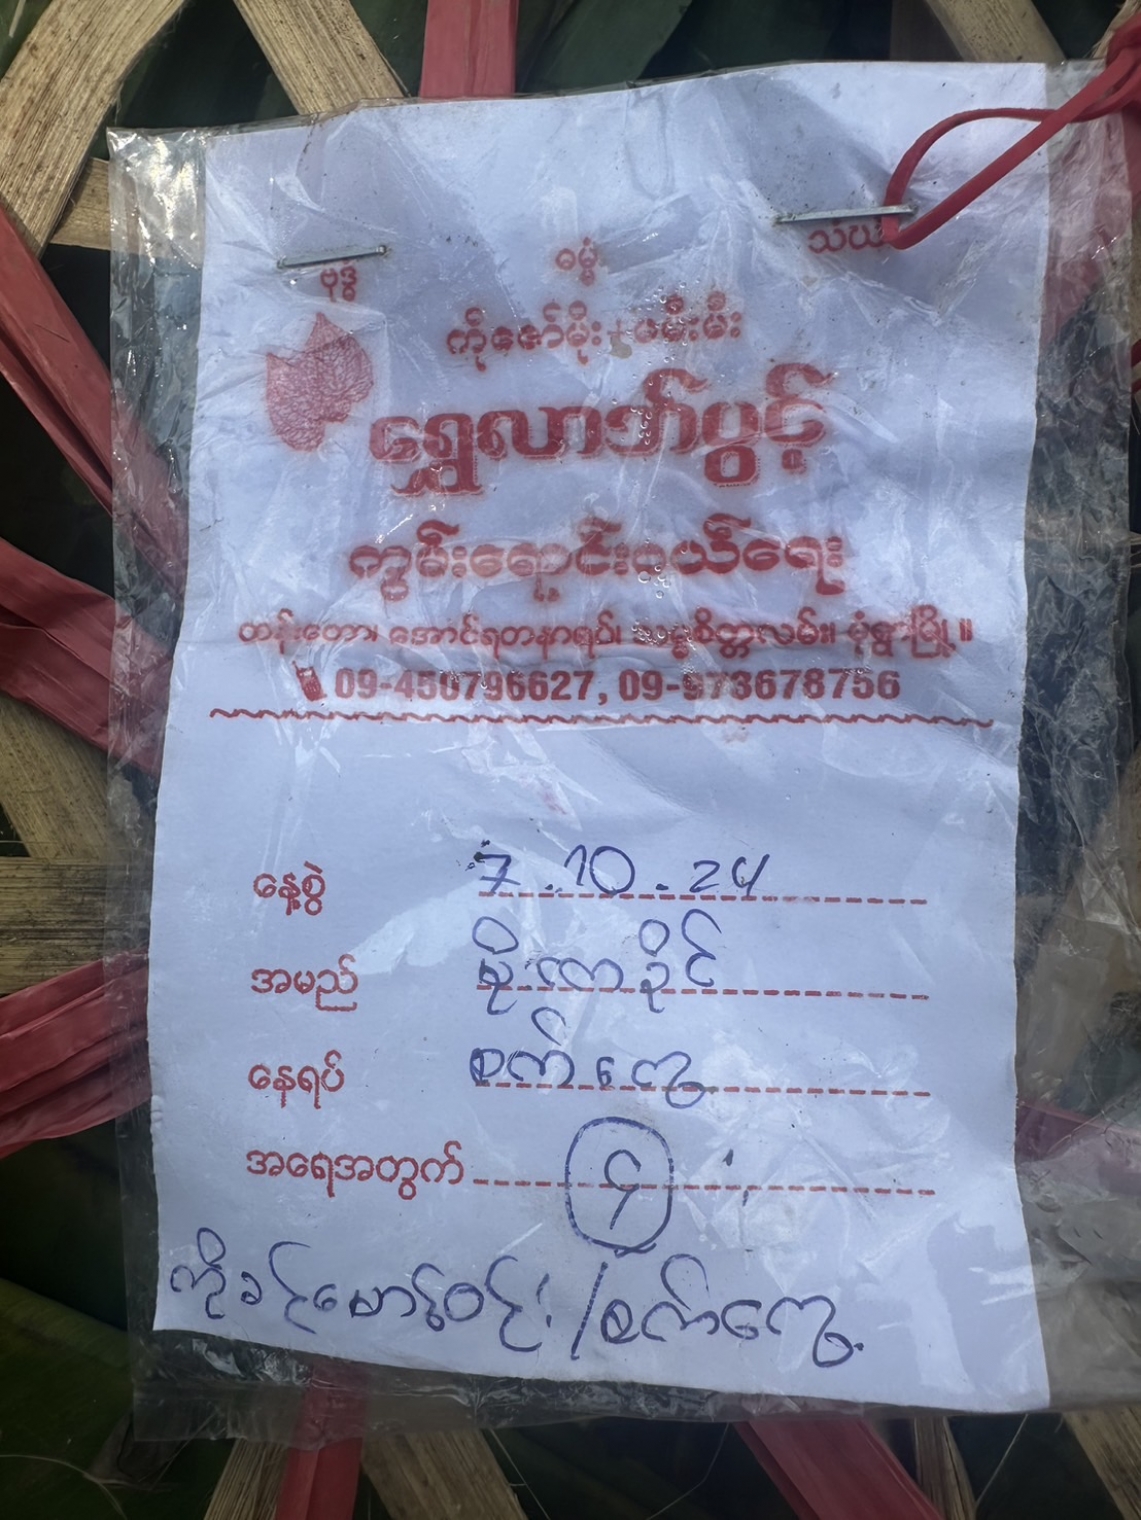 ဗုဒ္ဓံ ဓမ္မံ သံဃံ
ကိုဇော်မိုး + မမီးမီး
ရွှေလာဘ်ပွင့်
ကွမ်းရောင်းဝယ်ရေး
တန်းတော၊ အောင်ရတနာရပ်၊ သစ္စိတ္တလမ်း။ မုံရွာမြို့။
09-450796627, 09-973678756
နေ့စွဲ 7.10.24
အမည် စိုးကခိုင်
နေရပ် စက်ကွေ့
အရေအတွက် ၄
ကိုခင်မောင်ဝင်း / စက်ကွေ့